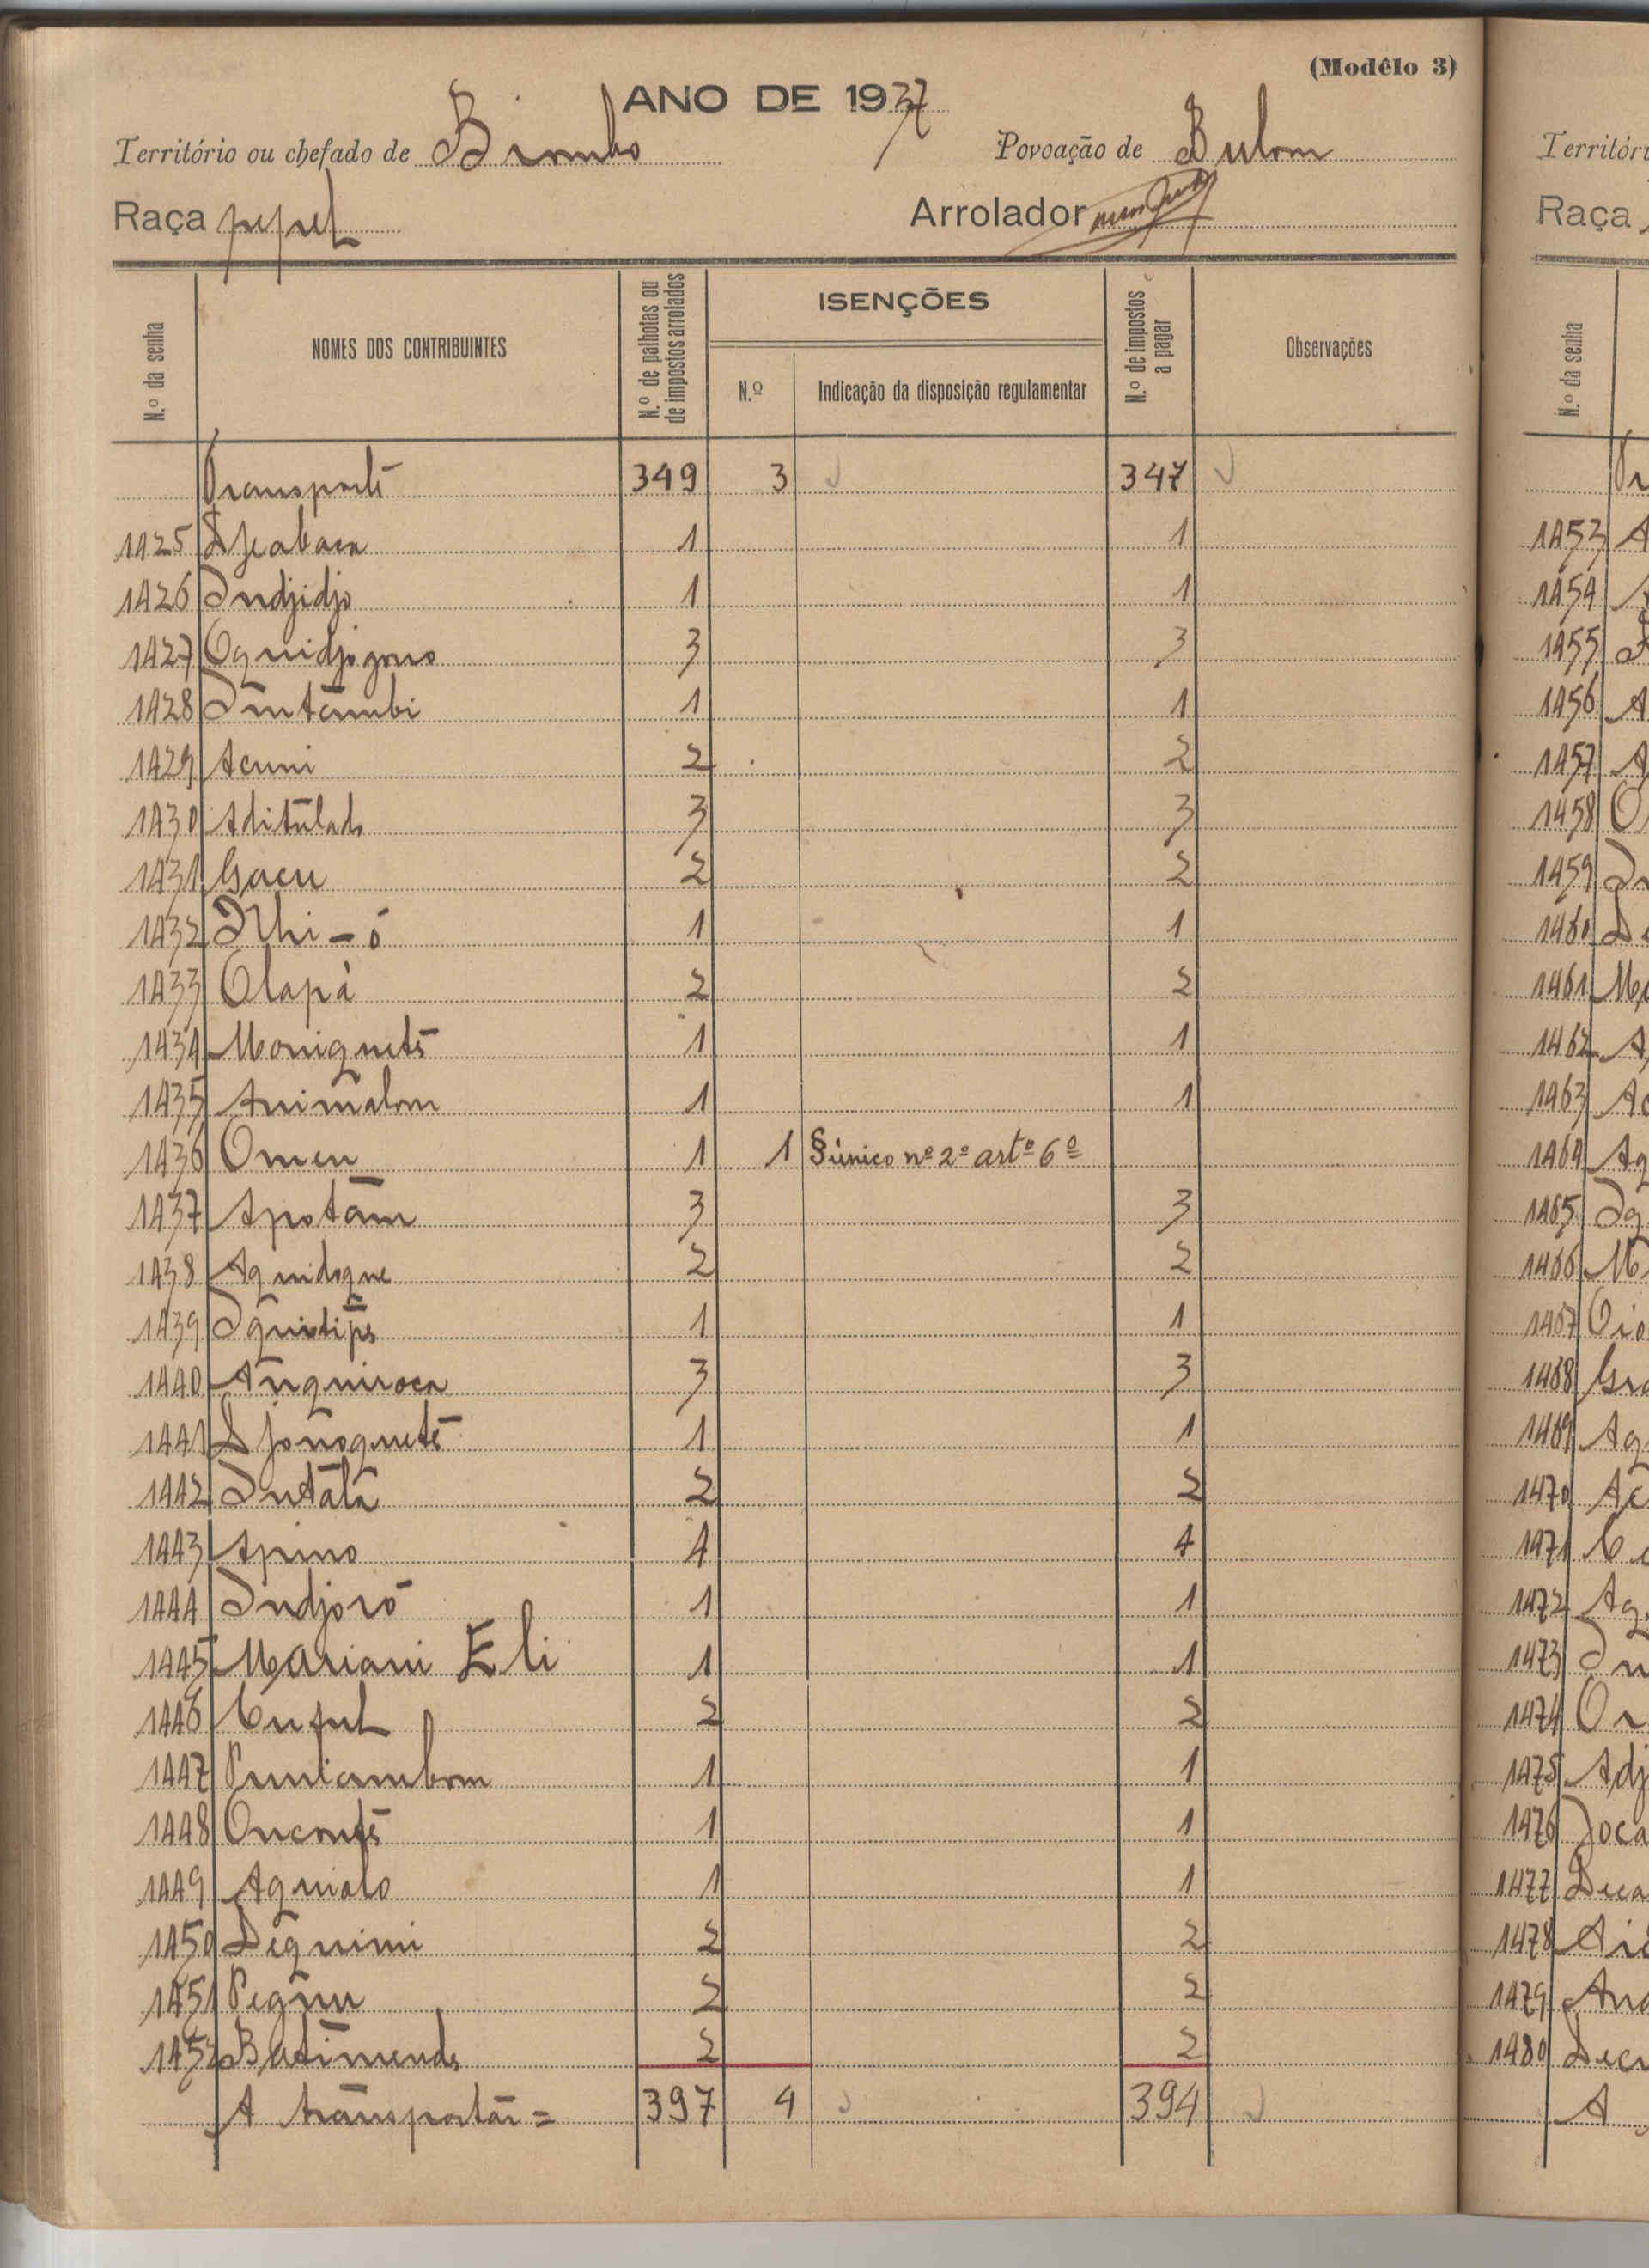 (Modêlo 3)
ANO DE 1937
Território ou chefado de Biombo Povoação de Bulom
Raça pepel Arrolador
N.º da senha
NOMES DOS CONTRIBUINTES
N.º de palhotas ou de impostos arrolados
ISENÇÕES
N.º
Indicação da disposição regulamentar
N.º de impostos a pagar
Observações
Transporte 349 3 347
1425 Djeabaca 1 1
1426 Indjidjo 1 1
1427 3 3
1428 Intambi 1 1
1429 Acuni 2 2
1430 Aditulado 3 3
1431 Gacu 2 2
1432 1 1
1433 Olapà 2 2
1434 Moniquetê 1 1
1435 Animalom 1 1
1436 Omeu 1 1 § único nº 2º artº 6º
1437 Apotam 3 3
1438 Aquidoque 2 2
1439 1 1
1440 Anquiroca 3 3
1441 Djonoquetê 1 1
1442 Intata 2 2
1443 Apino 4 4
1444 Indjoró 1 1
1445 Mariani Eli 1 1
1446 2 2
1447 1 1
1448 1 1
1449 Aquialo 1 1
1450 Dequimi 2 2
1451 2 2
1452 Batimenda 2 2
A transportar = 397 4 394
Territóri
Raça
N.º da senha
1453 A
1454
1455
1456 A
1457 A
1458 O
1459
1460 D
1461 Ma
1462 A
1463 Ac
1464 Aq
1465
1466 M
1467 Oio
1468
1469 Aq
1470 Ac
1471
1472 Aq
1473 In
1474 Or
1475 Adj
1476 Joca
1477 Deca
1478
1479
1480
A